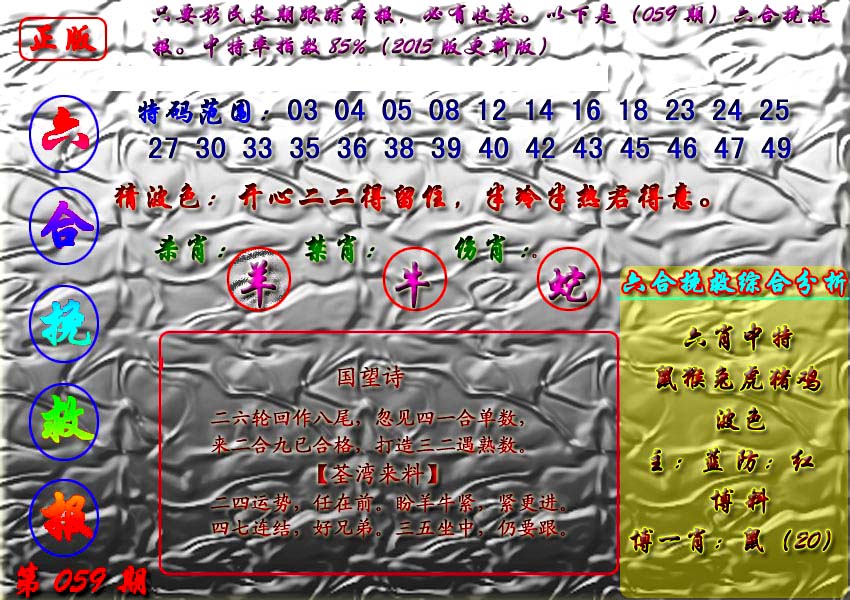 正版
只要彩民长期跟踪本报，必有收获。以下是（059期）六合挽救
报。中特率指数85%（2015版更新版）
六合挽救报
第059期
特码范围：03 04 05 08 12 14 16 18 23 24 25
27 30 33 35 36 38 39 40 42 43 45 46 47 49
猜波色：开心二二得留住，半冷半热君得意。
杀肖：羊 禁肖：牛 伤肖：蛇
国望诗
二六轮回作八尾，忽见四一合单数，
来二合九已合格，打造三二遇熟数。
【荃湾来料】
二四运势，任在前。盼羊牛紧，紧更进。
四七连结，好兄弟。三五坐中，仍要跟。
六合挽救综合分析
六肖中特
鼠猴兔虎猪鸡
波色
主：蓝防：红
博料
博一肖：鼠（20）